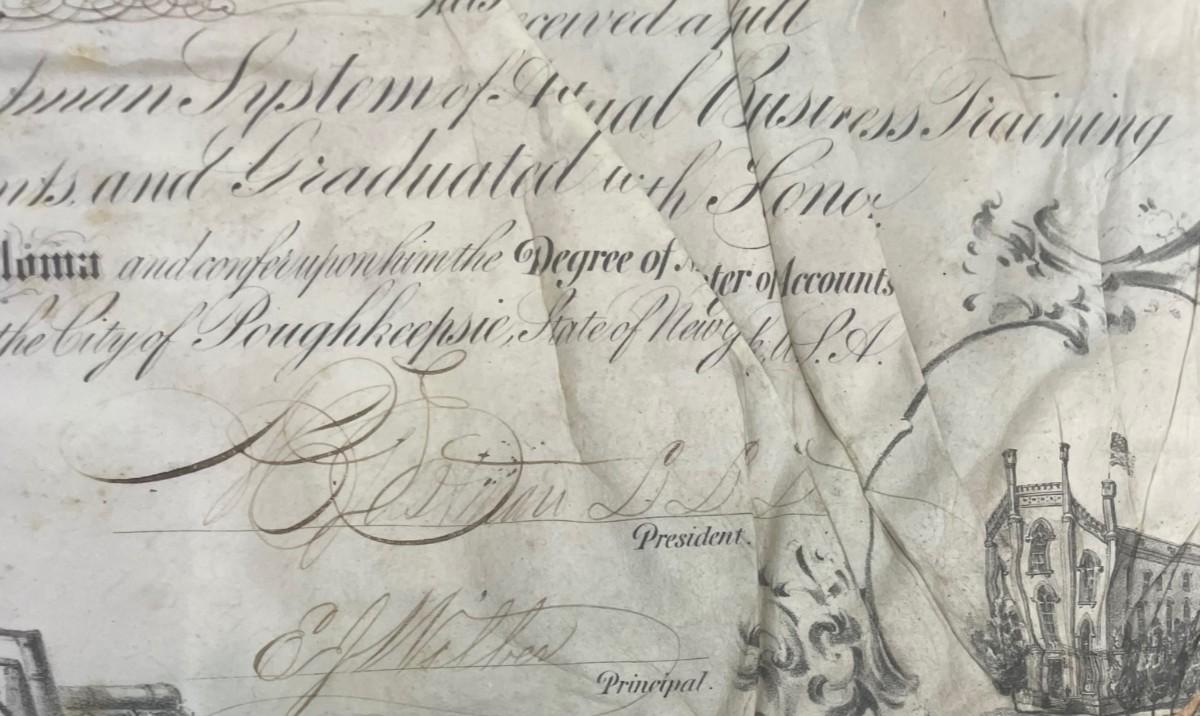 has received a full
tman System of Actual Business Training
nts, and Graduated with Hono
loma and confer upon him the Degree of ster of Accounts
the City of Poughkeepsie, State of New Y k, U.S.A.
L L D
President.
E J Wilber
Principal.